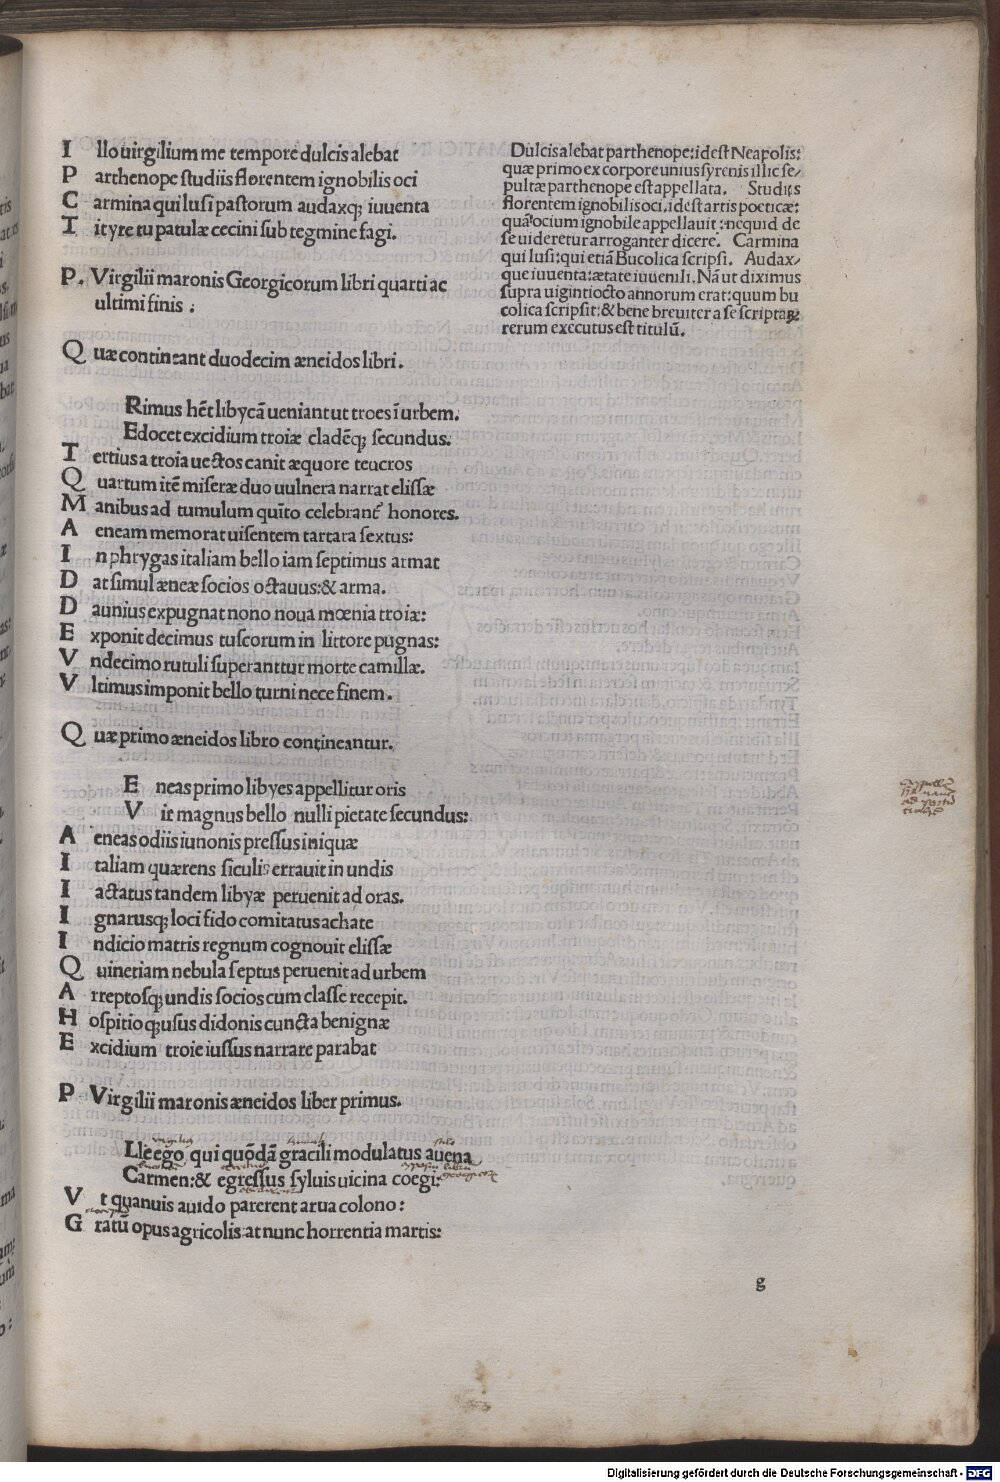 I llo uirgilium me tempore dulcis alebat
P arthenope studiis florentem ignobilis oci
C armina qui lusi pastorum audaxq; iuuenta
T ityre tu patulæ cecini sub tegmine fagi.
P. Virgilii maronis Georgicorum libri quarti ac
ultimi finis :
Q uæ contineant duodecim æneidos libri.
Rimus hēt libycā ueniant ut troes ī urbem.
Edocet excidium troiæ cladēq; secundus.
T ertius a troia uectos canit æquore teucros
Q uartum itē miseræ duo uulnera narrat elissæ
M anibus ad tumulum quīto celebrant' honores.
A eneam memorat uisentem tartara sextus:
I n phrygas italiam bello iam septimus armat
D at simul æneæ socios octauus: & arma.
D aunius expugnat nono noua mœnia troiæ:
E xponit decimus tuscorum in littore pugnas:
V ndecimo rutuli superantur morte camillæ.
V ltimus imponit bello turni nece finem.
Q uæ primo æneidos libro contineantur.
E neas primo libyes appellitur oris
V ir magnus bello nulli pietate secundus:
A eneas odiis iunonis pressus iniquæ
I taliam quærens siculis errauit in undis
I actatus tandem libyæ peruenit ad oras.
I gnarusq; loci fido comitatus achate
I ndicio matris regnum cognouit elissæ
Q uinetiam nebula septus peruenit ad urbem
A rreptosq; undis socios cum classe recepit.
H ospitioq; usus didonis cuncta benignæ
E xcidium troie iussus narrare parabat
P. Virgilii maronis æneidos liber primus.
Lle ego qui quōdā gracili modulatus auena
Carmen: & egressus syluis uicina coegi:
V t quanuis auido parerent arua colono:
G ratū opus agricolis: at nunc horrentia martis:
Dulcis alebat parthenope: id est Neapolis:
quæ primo ex corpore unius syrenis illic se/
pultæ parthenope est appellata. Studiis
florentem ignobilis oci. id est artis poeticæ:
quā ocium ignobile appellauit: nequid de
se uideretur arroganter dicere. Carmina
qui lusi: qui etiā Bucolica scripsi. Audax/
que iuuenta: ætate iuuenili. Nā ut diximus
supra uigintiocto annorum erat: quum bu
colica scripsit: & bene breuiter a se scriptaꝝ
rerum executus est titulū.
g
Digitalisierung gefördert durch die Deutsche Forschungsgemeinschaft - DFG